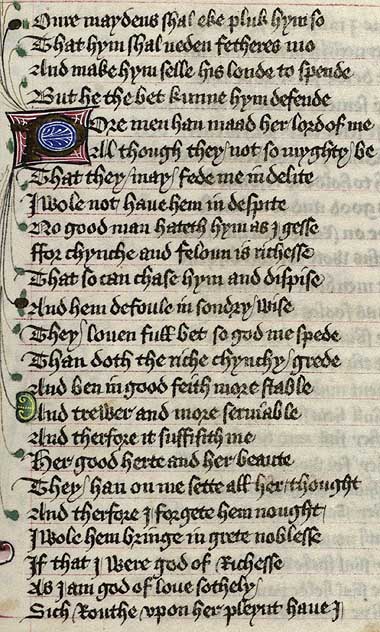 Oure maydens shal eke pluk hym so
That hym shal neden fetheres mo
And make hym selle his londe to spende
But he the bet kunne hym defende
Pore men han maad her lord of me
All though they not so myghty be
That they may fede me in delite
I wole not haue hem in despite
No good man hateth hym as I gesse
ffor chynche and feloun is richesse
That so can chase hym and dispise
And hem defoule in sondry wise
They louen full bet so god me spede
Than doth the riche chynchy grede
And ben in good feith more stable
And trewer and more seruiable
And therfore it suffisith me
Her good herte and her beaute
They han on me sette all her thought
And therfore I forgete hem nought
I wole hem bringe in grete noblesse
If that I were god of Richesse
As I am god of loue sothely
Sich Routhe vpon her pleynt haue I